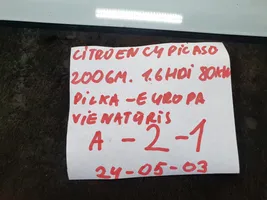 CITROEN C4 PICASO
2006M. 1.6HDI 80KW
PILKA-EUROPA
VIENATURIS
A-2-1
24-05-03